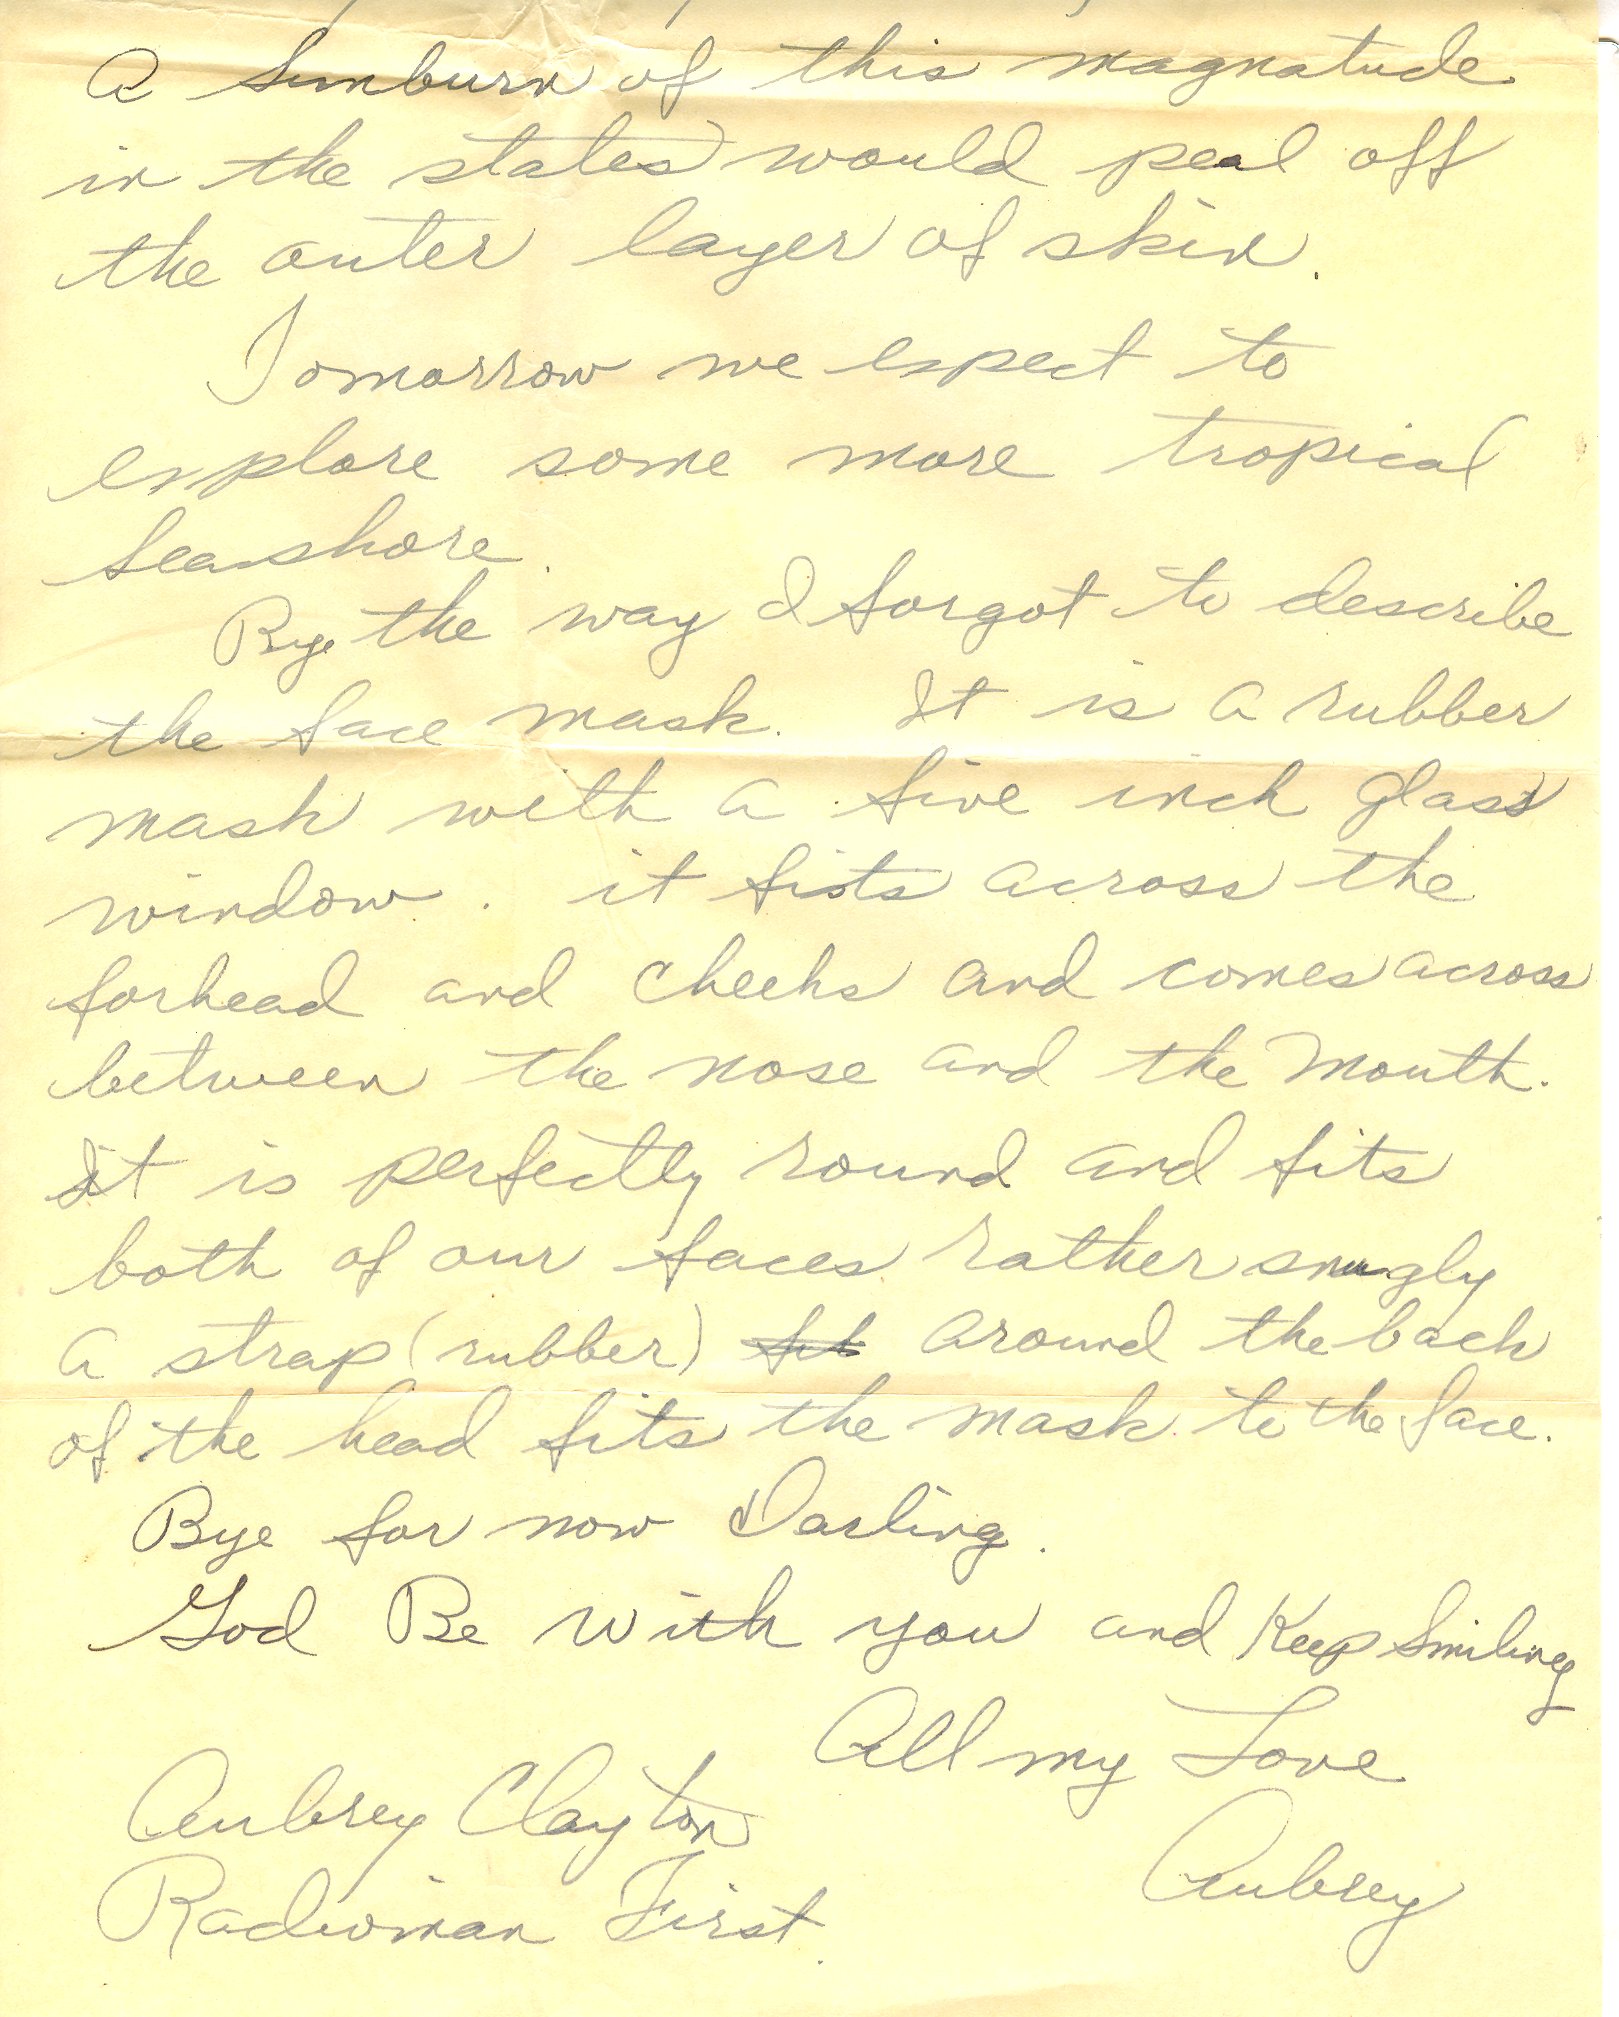 a sunburn of this magnatude
in the states would peal off
the outer layer of skin.
Tomorrow we expect to
explore some more tropical
seashore.
Bye the way I forgot to describe
the face mask. It is a rubber
mask with a five inch glass
window. it fits across the
forhead and cheeks and comes across
between the nose and the mouth.
It is perfectly round and fits
both of our faces rather snugly
a strap (rubber) around the back
of the head fits the mask to the face.
Bye for now Darling.
God Be with you and Keep Smiling
All my Love
Aubrey
Aubrey Clayton
Radioman First.